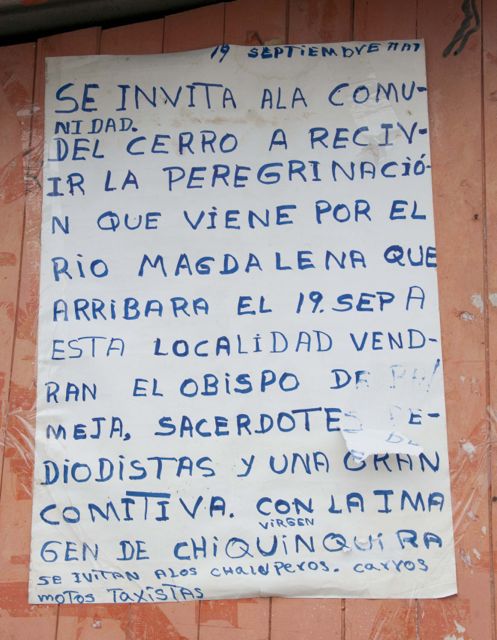 19 SEPTIEMBRE
SE INVITA ALA COMU-
NIDAD.
DEL CERRO A RECIV-
IR LA PEREGRINACIÓ-
N QUE VIENE POR EL
RIO MAGDALENA QUE
ARRIBARA EL 19. SEP A
ESTA LOCALIDAD VEND-
RAN EL OBISPO DE
MEJA, SACERDOTES PE-
DIODISTAS Y UNA GRAN
COMITIVA. CON LA IMA
VIRGEN
GEN DE CHIQUINQUIRA
SE IVITAN ALOS CHALUPEROS. CARROS
MOTOS TAXISTAS